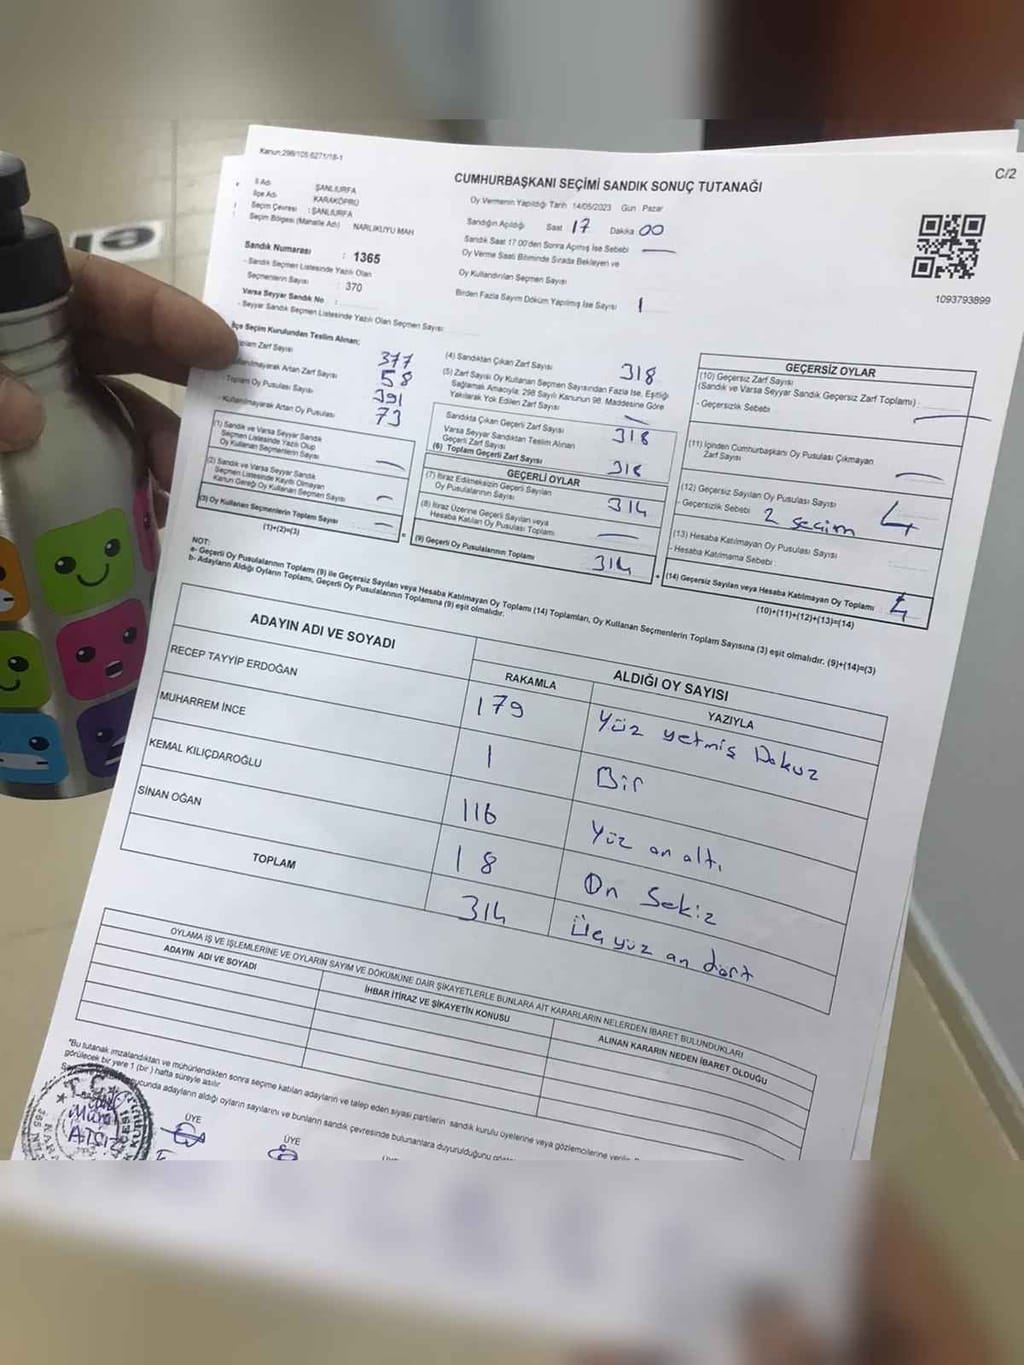 Kanun:298/105 6271/18-1
C/2
CUMHURBAŞKANI SEÇİMİ SANDIK SONUÇ TUTANAĞI
İl Adı ŞANLIURFA
İlçe Adı KARAKÖPRÜ
Seçim Çevresi : ŞANLIURFA
Seçim Bölgesi (Mahalle Adı) NARLIKUYU MAH
Sandık Numarası : 1365
- Sandık Seçmen Listesinde Yazılı Olan
Seçmenlerin Sayısı : 370
Varsa Seyyar Sandık No :
- Seyyar Sandık Seçmen Listesinde Yazılı Olan Seçmen Sayısı
Oy Vermenin Yapıldığı Tarih 14/05/2023 Gün Pazar
Sandığın Açıldığı Saat 17 Dakika 00
Sandık Saat 17:00'den Sonra Açımış İse Sebebi
Oy Verme Saati Bitiminde Sırada Bekleyen ve
Oy Kullandırılan Seçmen Sayısı
Birden Fazla Sayım Döküm Yapılmış İse Sayısı 1
1093793899
İlçe Seçim Kurulundan Teslim Alınan;
Zarf Sayısı 377
Artan Zarf Sayısı 58
Toplam Oy Pusulası Sayısı 391
- Kullanılmayarak Artan Oy Pusulası 73
(1) Sandık ve Varsa Seyyar Sandık
Seçmen Listesinde Yazılı Olup
Oy Kullanan Seçmenlerin Sayısı
(2) Sandık ve Varsa Seyyar Sandık
Seçmen Listesinde Kayıtlı Olmayan
Kanun Gereği Oy Kullanan Seçmen Sayısı
(3) Oy Kullanan Seçmenlerin Toplam Sayısı
(1)+(2)=(3)
(4) Sandıktan Çıkan Zarf Sayısı 318
(5) Zarf Sayısı Oy Kullanan Seçmen Sayısından Fazla İse, Eşitliği
Sağlamak Amacıyla; 298 Sayılı Kanunun 98. Maddesine Göre
Yakılarak Yok Edilen Zarf Sayısı
Sandıkta Çıkan Geçerli Zarf Sayısı 318
Varsa Seyyar Sandıktan Teslim Alınan
Geçerli Zarf Sayısı
(6) Toplam Geçerli Zarf Sayısı 318
GEÇERLİ OYLAR
(7) İtiraz Edilmeksizin Geçerli Sayılan
Oy Pusulalarının Sayısı 314
(8) İtiraz Üzerine Geçerli Sayılan veya
Hesaba Katılan Oy Pusulası Toplamı
(9) Geçerli Oy Pusulalarının Toplamı 314
GEÇERSİZ OYLAR
(10) Geçersiz Zarf Sayısı
(Sandık ve Varsa Seyyar Sandık Geçersiz Zarf Toplamı) :
- Geçersizlik Sebebi
(11) İçinden Cumhurbaşkanı Oy Pusulası Çıkmayan
Zarf Sayısı
(12) Geçersiz Sayılan Oy Pusulası Sayısı 4
- Geçersizlik Sebebi 2 seçim
(13) Hesaba Katılmayan Oy Pusulası Sayısı
- Hesaba Katılmama Sebebi :
(14) Geçersiz Sayılan veya Hesaba Katılmayan Oy Toplamı 4
(10)+(11)+(12)+(13)=(14)
NOT:
a- Geçerli Oy Pusulalarının Toplamı (9) ile Geçersiz Sayılan veya Hesaba Katılmayan Oy Toplamı (14) Toplamları, Oy Kullanan Seçmenlerin Toplam Sayısına (3) eşit olmalıdır. (9)+(14)=(3)
b- Adayların Aldığı Oyların Toplamı, Geçerli Oy Pusulalarının Toplamına (9) eşit olmalıdır.
ADAYIN ADI VE SOYADI ALDIĞI OY SAYISI
RAKAMLA YAZIYLA
RECEP TAYYİP ERDOĞAN 179 Yüz yetmiş Dokuz
MUHARREM İNCE 1 Bir
KEMAL KILIÇDAROĞLU 116 Yüz on altı
SİNAN OĞAN 18 On Sekiz
TOPLAM 314 Üç yüz on dört
OYLAMA İŞ VE İŞLEMLERİNE VE OYLARIN SAYIM VE DÖKÜMÜNE DAİR ŞİKAYETLERLE BUNLARA AİT KARARLARIN NELERDEN İBARET BULUNDUKLARI
ADAYIN ADI VE SOYADI İHBAR İTİRAZ VE ŞİKAYETİN KONUSU ALINAN KARARIN NEDEN İBARET OLDUĞU
"Bu tutanak imzalandıktan ve mühürlendikten sonra seçime katılan adayların ve talep eden siyasi partilerin sandık kurulu üyelerine veya gözlemcilerine
görülecek bir yere 1 (bir) hafta süreyle asılır.
adayların aldığı oyların sayılarını ve bunların sandık çevresinde bulunanlara duyurulduğunu
ÜYE
ÜYE